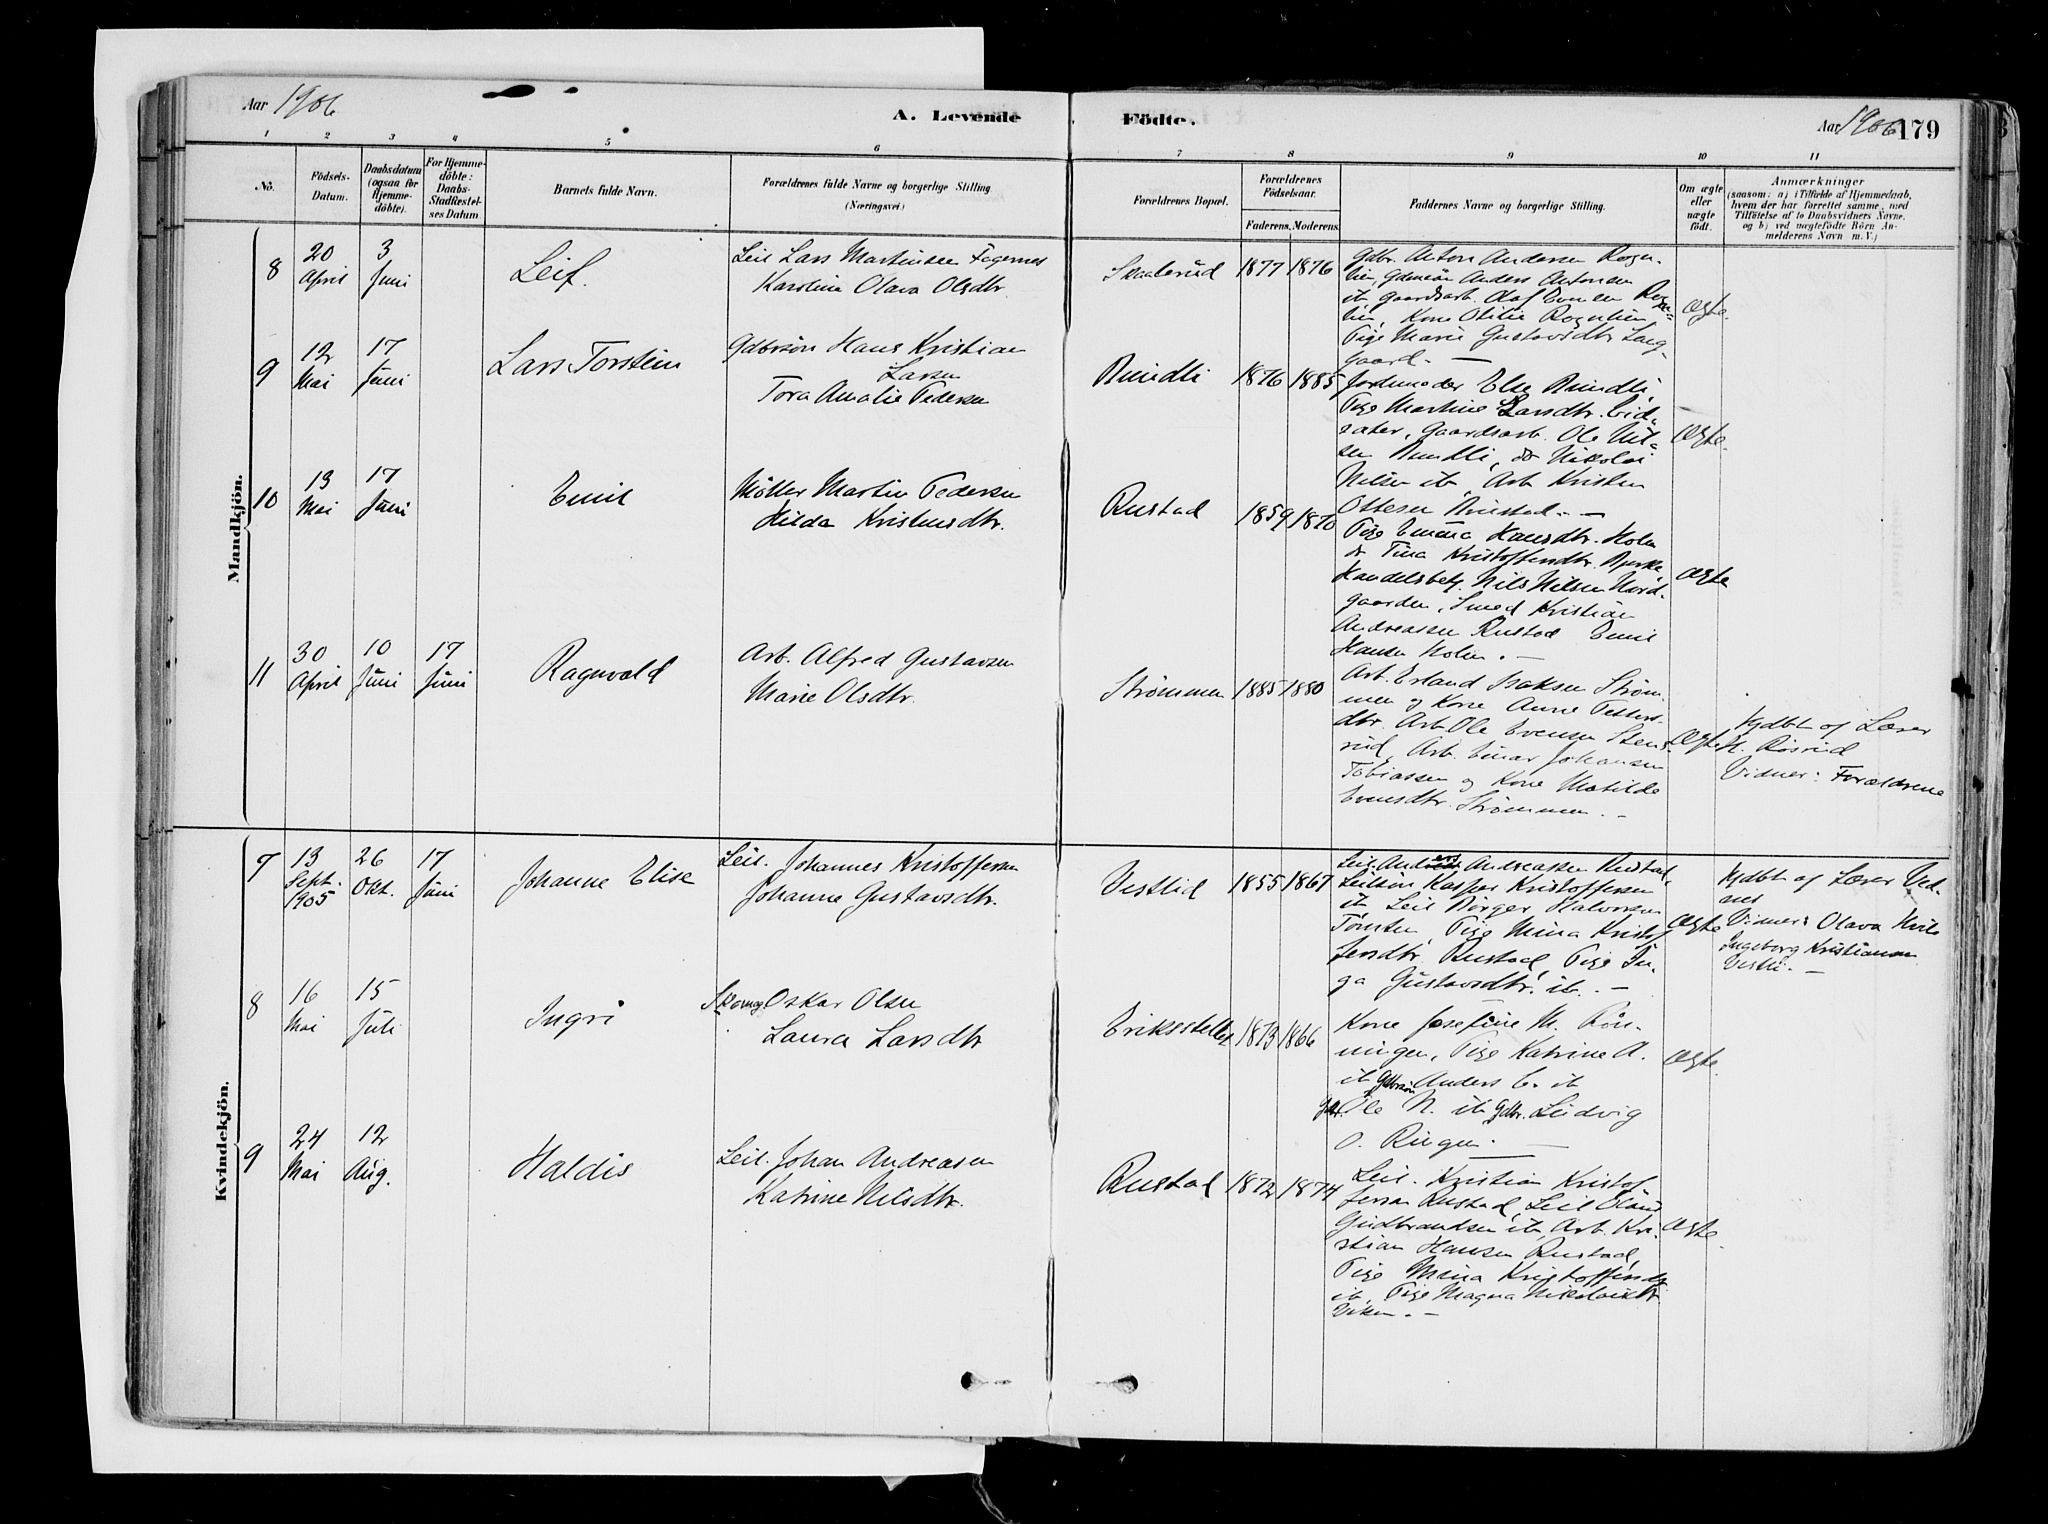 Aar 1906
A. Levende
Födte.
Aar 1906 179
1 2 3 4 5 6 7 8 9 10 11
No.
Födsels-Datum.
Daabsdatum (ogsaa for Hjemmedöbte).
For Hjemmedöbte: Daabs-Stadfæstelses Datum
Barnets fulde Navn.
Forældrenes fulde Navne og borgerlige Stilling (Næringsvei)
Forældrenes Bopæl.
Forældrenes Födselsaar.
Faderens. Moderens.
Faddernes Navne og borgerlige Stilling.
Om ægte eller uægte födt.
Anmærkninger
(saasom: a) i Tilfælde af Hjemmedaab,
hvem der har forrettet samme, med
Tilföielse af to Daabsvidners Navne.
og b) ved uægtefödte Börn An-
melderens Navn m. V.)
Mandkjön.
8
20 April
3 Juni
Leif.
Leil Lars Martinsen Fagernes
Karoline Olava Olsdtr.
Skalerud
1877 1876
Gdbr. Anton Andersen Rogn-
lien, Gdmsön Anders Antonsen
ib, Gaardsarb. Olaf Evensen Rogn-
lien, Kone Otilie Rognlien
Pige Marie Gustavsdtr Lang-
gaard. —
Ægte.
9
12 Mai
17 Juni
Lars Torstein
Gdbrsön Hans Kristian
Larsen
Tora Amalie Pedersen
Rundli
1876 1885
Jordmoder Else Rundli,
Pige Martine Larsdtr. Eid-
sæter, Gaardsarb. Ole Niel-
sen Rundli, do Nikolai
Nilsen ib, Arb. Kristen
Ottesen Rustad. —
Ægte
10
13 Mai
17 Juni
Emil
Møller Martin Pedersen
Hilda Kristensdtr.
Rustad
1859 1870
Pige Emma Hansdtr. Holm
do Tina Kristoffersdtr. Bjerke
Handelsbetj. Nils Nilsen Nord-
gaarden, Smed Kristian
Andreassen Rustad Emil
Hansen Holm. —
Ægte
11
30 April
10 Juni
17 Juni
Ragnvald
Arb. Alfred Gustavsen
Marie Olsdtr.
Strømmen
1885 1880
Arb. Erland Isaksen Strøm-
men og Kone Anne Petters-
dtr. Arb Ole Evensen Stens-
rud, Arb. Einar Johansen
Tobiassen og Kone Matilde
Evensdtr. Strømmen. —
Ægte
Hjdbt af Lærer
N. Røsrud
Vidner: Forældrene
Kvindekjön.
7
13 Sept. 1905
26 Okt.
17 Juni
Johanne Elise
Leil. Johannes Kristoffersen
Johanne Gustavsdtr.
Vestlid
1855 1867
Leil. Anders Andreassen Rustad,
Leilsön Kaspar Kristoffersen
ib Leil Börger Halvorsen
Tömten, Pige Mina Kristof-
fersdtr. Rustad, Pige In-
ga Gustavsdtr. ib. —
Ægte
Hjdbt af Lærer Ved-
nes
Vidner: Olava
Ingeborg Kristiansen
Vestli. —
8
16 Mai
15 Juli
Ingri
Skomag Oskar Olsen
Laura Larsdtr
Eriksstellet
1873 1866
Kone Josefine M. Rön-
ningen, Pige Katrine A.
ib Gdbrsön Anders E. ib
Gdbr. Ole N. ib Gdbr. Ludvig
O. Ringen. —
Ægte.
9
24 Mai
12 Aug.
Haldis
Leil. Johan Andreasen
Katrine Nilsdtr.
Rustad
1872 1874
Leil. Kristian Kristof-
fersen Rustad, Leil Erland
Gudbrandsen ib, Arb. Kri-
stian Hansen Rustad,
Pige Mina Kristoffersdtr
ib, Pige Magna Nikolaisdtr
Viken. —
Ægte.